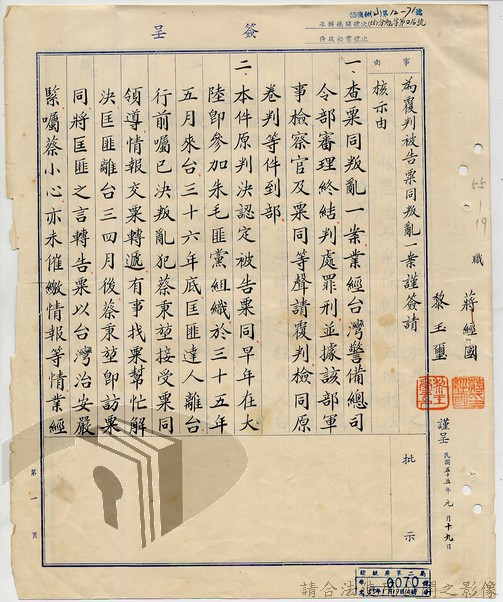 簽呈
事由
為覆判被告栗同叛亂一案謹簽請
核示由
一、查栗同叛亂一案業經台灣警備總司
令部審理終結判處罪刑並據該部軍
事檢察官及栗同等聲請覆判檢同原
卷判等件到部
二、本件原判決認定被告栗同早年在大
陸卽參加朱毛匪黨組織於三十五年
五月來台三十六年底匡匪達人離台
行前囑已決叛亂犯蔡秉堃接受栗同
領導情報交栗轉遞有事找栗幫忙解
決匡匪離台三四月後蔡秉堃卽訪栗
同將匡匪之言轉告栗以台灣治安嚴
緊囑蔡小心亦未催繳情報等情業經
職
蔣經國
黎玉璽
謹呈
民國五十五年元月十九日
批示
第一頁
55
1
19
0070